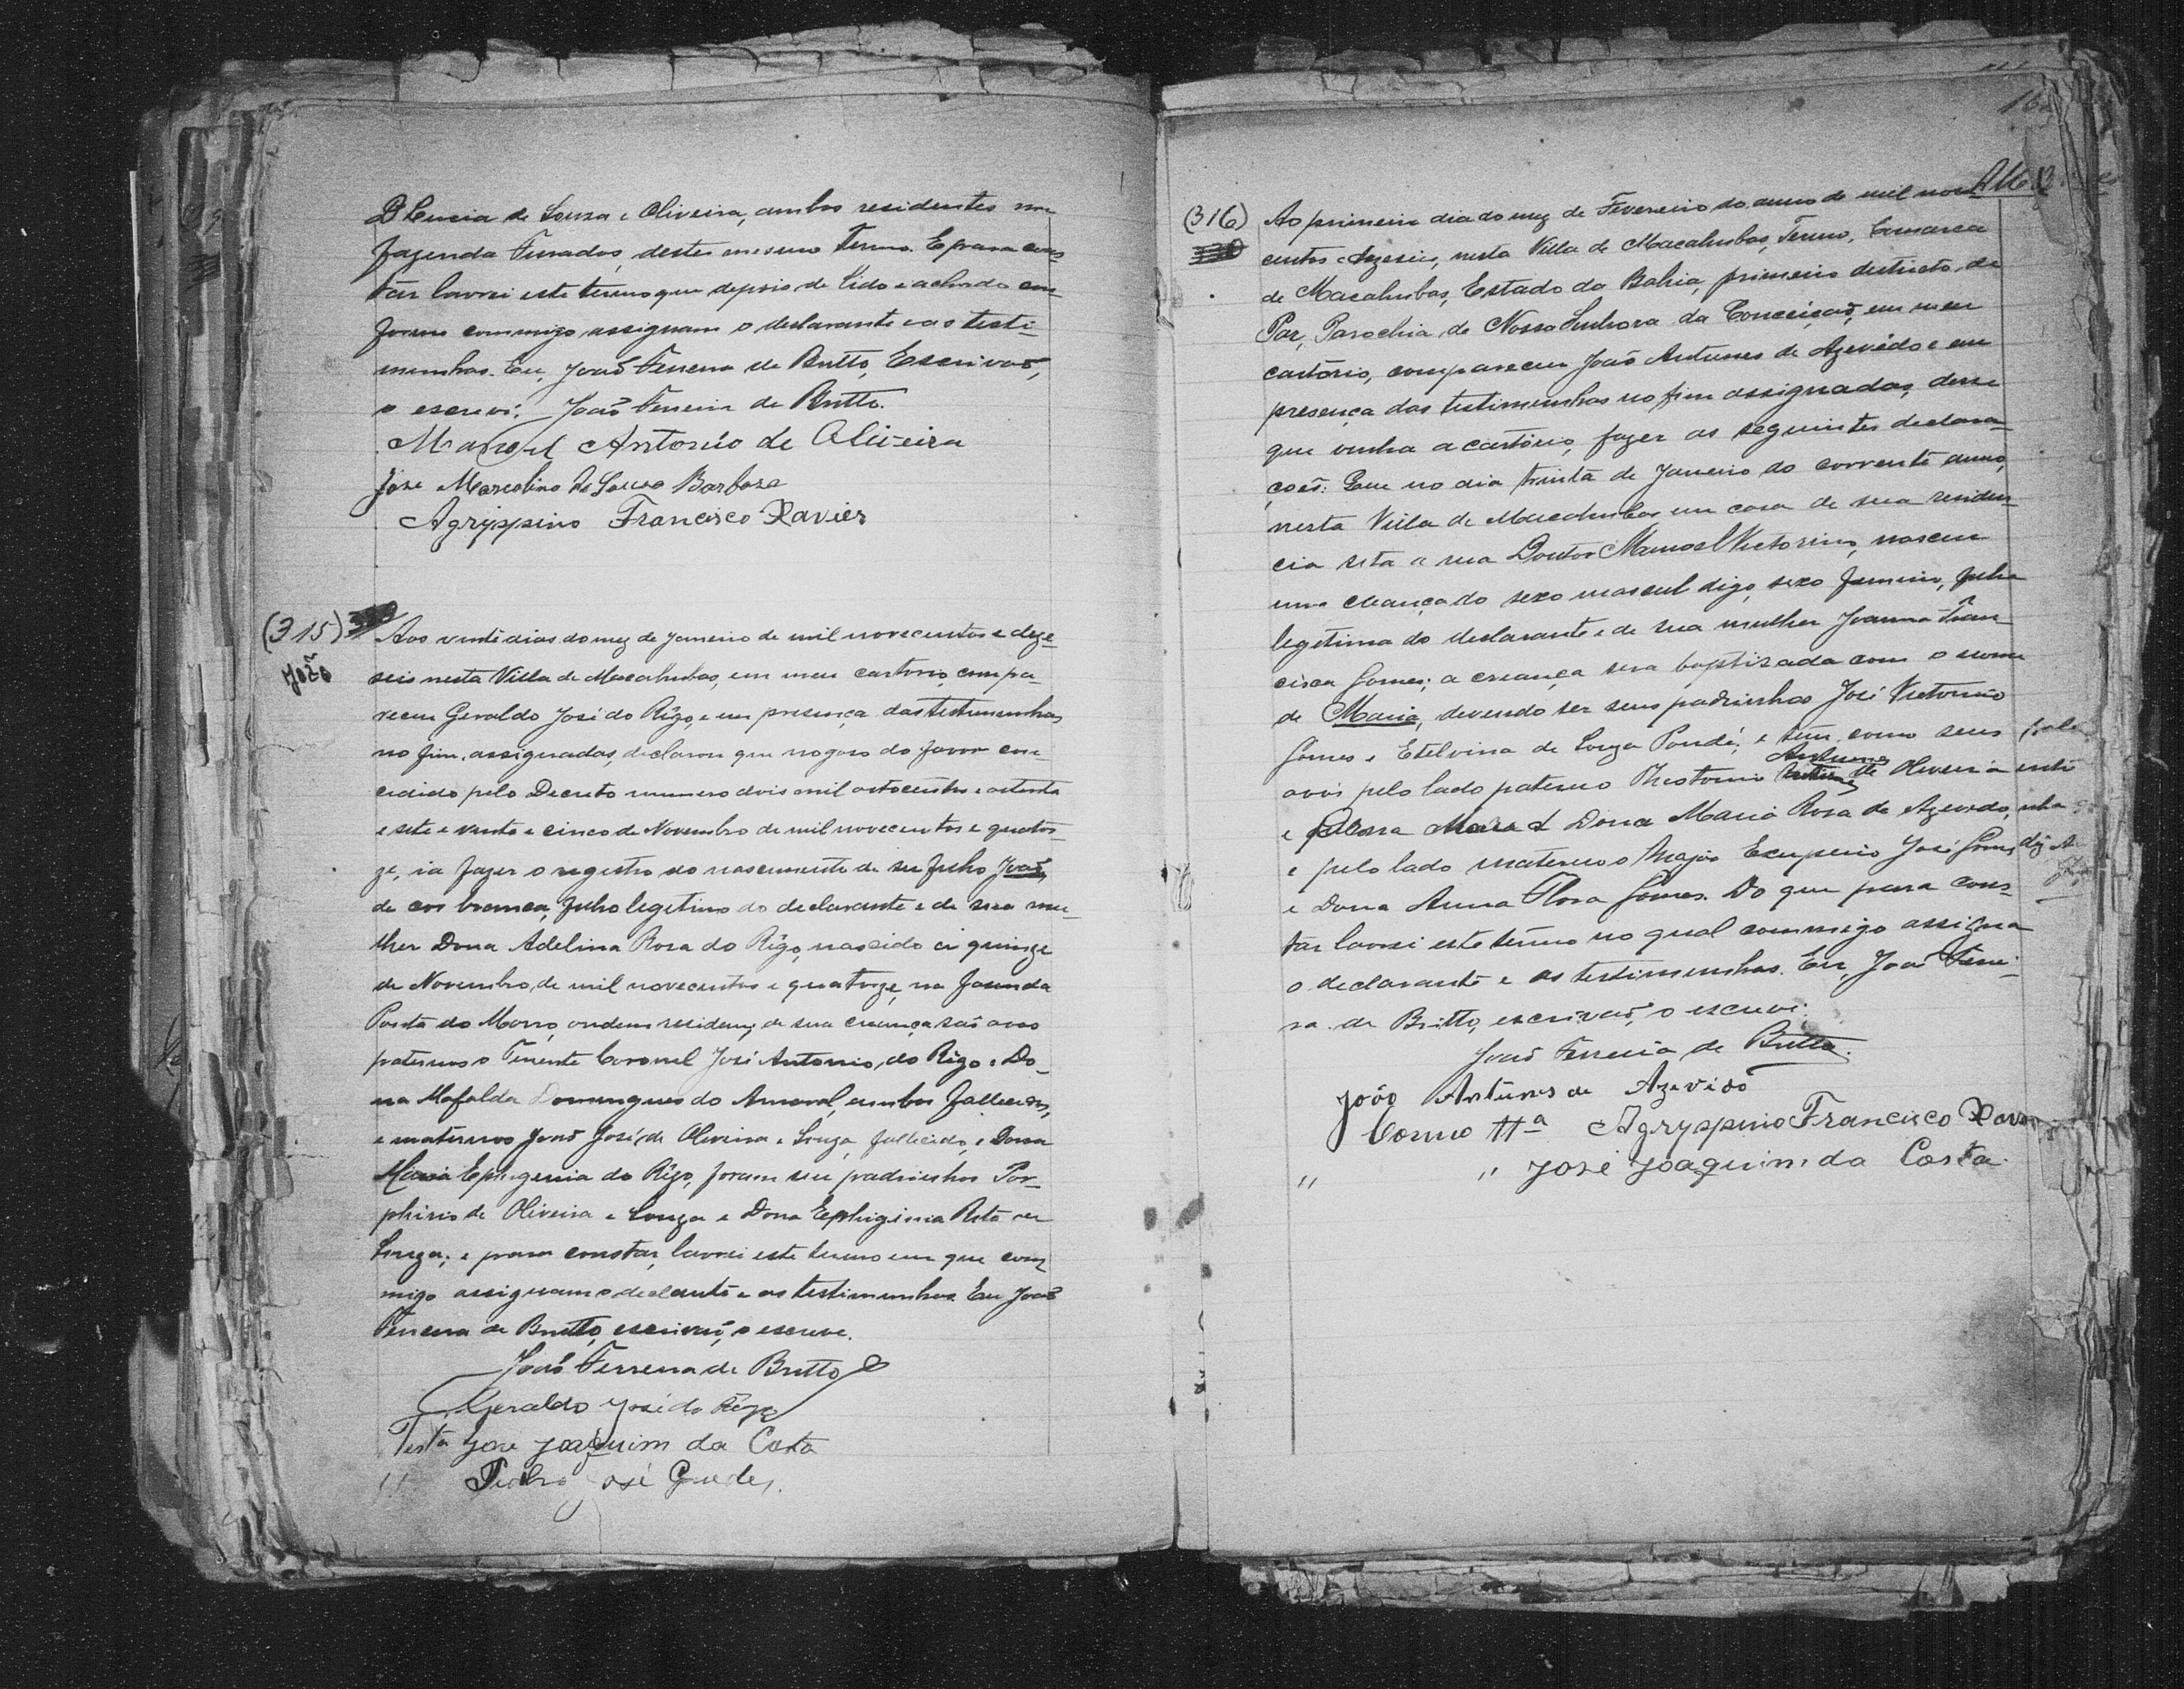 D Lucia de Souza e Oliveira, ambos residentes na
fazenda Furados, deste mesmo Termo. E para cons-
tar lavrei este termo que depois de lido e achado con-
forme commigo assignam o declarante e as testi-
munhas. Eu, João Ferreira de Britto, Escrivaõ,
o escrevi. João Ferreira de Britto.
Manoel Antonio de Oliveira
José Marcolino de Souza Barbosa
Agryppino Francisco Xavier
(315)
João
Aos vinte dias do mez de Janeiro de mil novecentos e deze-
seis nesta Villa de Macahubas, em meu cartorio, compa-
receu Geraldo José do Rêgo, e em presença das testimunhas
no fim assignadas, declarou que no goso do favor con-
cedido pelo Decreto numero dois mil oitocentos e oitenta
e sete e vinte e cinco de Novembro de mil novecentos e quator-
ze, ia fazer o registro do nascimento de seu filho João,
de cor branca, filho legitimo do declarante e de sua mu-
lher Dona Adelina Rosa do Rêgo, nascido a quinze
de Novembro, de mil novecentos e quatorze, na fazenda
Ponta do Morro, ondem residem, de sua creança saõ avos
paternos o Tenente Coronel José Antonio, do Rêgo e Do-
na Mafalda Domingues do Amaral, ambos fallecidos,
e maternos João José de Oliveira e Souza, fallecido, e Dona
Maria Ephigenia do Rêgo, foram seu padrinhos Por-
phirio de Oliveira e Souza e Dona Ephigenia Rita de
Souza; e para constar, lavrei este termo em que com
migo assignam o declante e as testimunhas. Eu João
Ferreira de Britto, escrivaõ, o escreve.
João Ferreira de Britto
Geraldo José do Rêgo
Testa José Joaquim da Costa
" Pedro José Guedes.
(316)
Ao primeiro dia do mez de Fevereiro do anno de mil nove
centos e dezeseis, nesta Villa de Macahubas, Termo, Comarca
de Macahubas, Estado da Bahia, primeiro destricto, de
Paz, Parochia de Nossa Senhora da Conceiçaõ, em meu
cartório, compareceu João Antunes de Azevêdo e em
presença das testimunhas no fim assignadas, disse
que vinha a cartório, fazer as seguintes declara-
çoẽs: Que no dia trinta de Janeiro do corrente anno,
nesta Villa de Macahubas em casa de sua residen-
cia sita a rua Doutor Manoel Victorino, nasceu
uma creança do sexo mascul digo, sexo femino, filha
legitima do declarante e de sua mulher Joanna Fran-
cisca Gomes; a creança sera baptisada com o nome
de Maria, devendo ser seus padrinhos José Victorino
Gomes e Etelvina de Souza Pondé; e tem como seus
avós pelo lado paterno Theotonio Antunes de Oliveira
e Dona Maria Rosa de Azevedo,
e pelo lado materno o Major Exuperio José Gomes
e Dona Anna Flora Gomes. Do que para cons-
tar lavrei este têrmo no qual commigo assigna
o declarante e as testimunhas. Eu, João Ferrei-
ra de Britto, escrivaõ, o escrevi.
João Ferreira de Britto.
João Antunes de Azevêdo
Como ttª Agryppino Francisco Xavier
" " José Joaquim da Costa